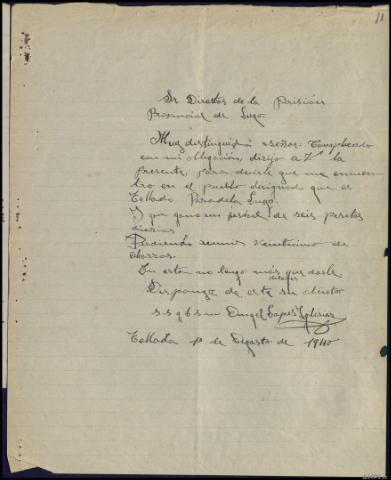 11
Sr Director de la Prisión
Provincial de Lugo.
Muy distinguido señor: Cumpliendo
con mi obligación, dirijo a V la
presente, para decirle que me encuen
tro en el pueblo designado que es
Tellado Paradela Lugo.
Y que gano un jornal de seis pesetas
diarias
Pudiendo reunir veinticinco de
ahorros.
En esta no tengo más que darle
Disponga de este su adicto
s s q b s m Angel Lopez Iglesias
Tellada 1º de Agosto de 1940